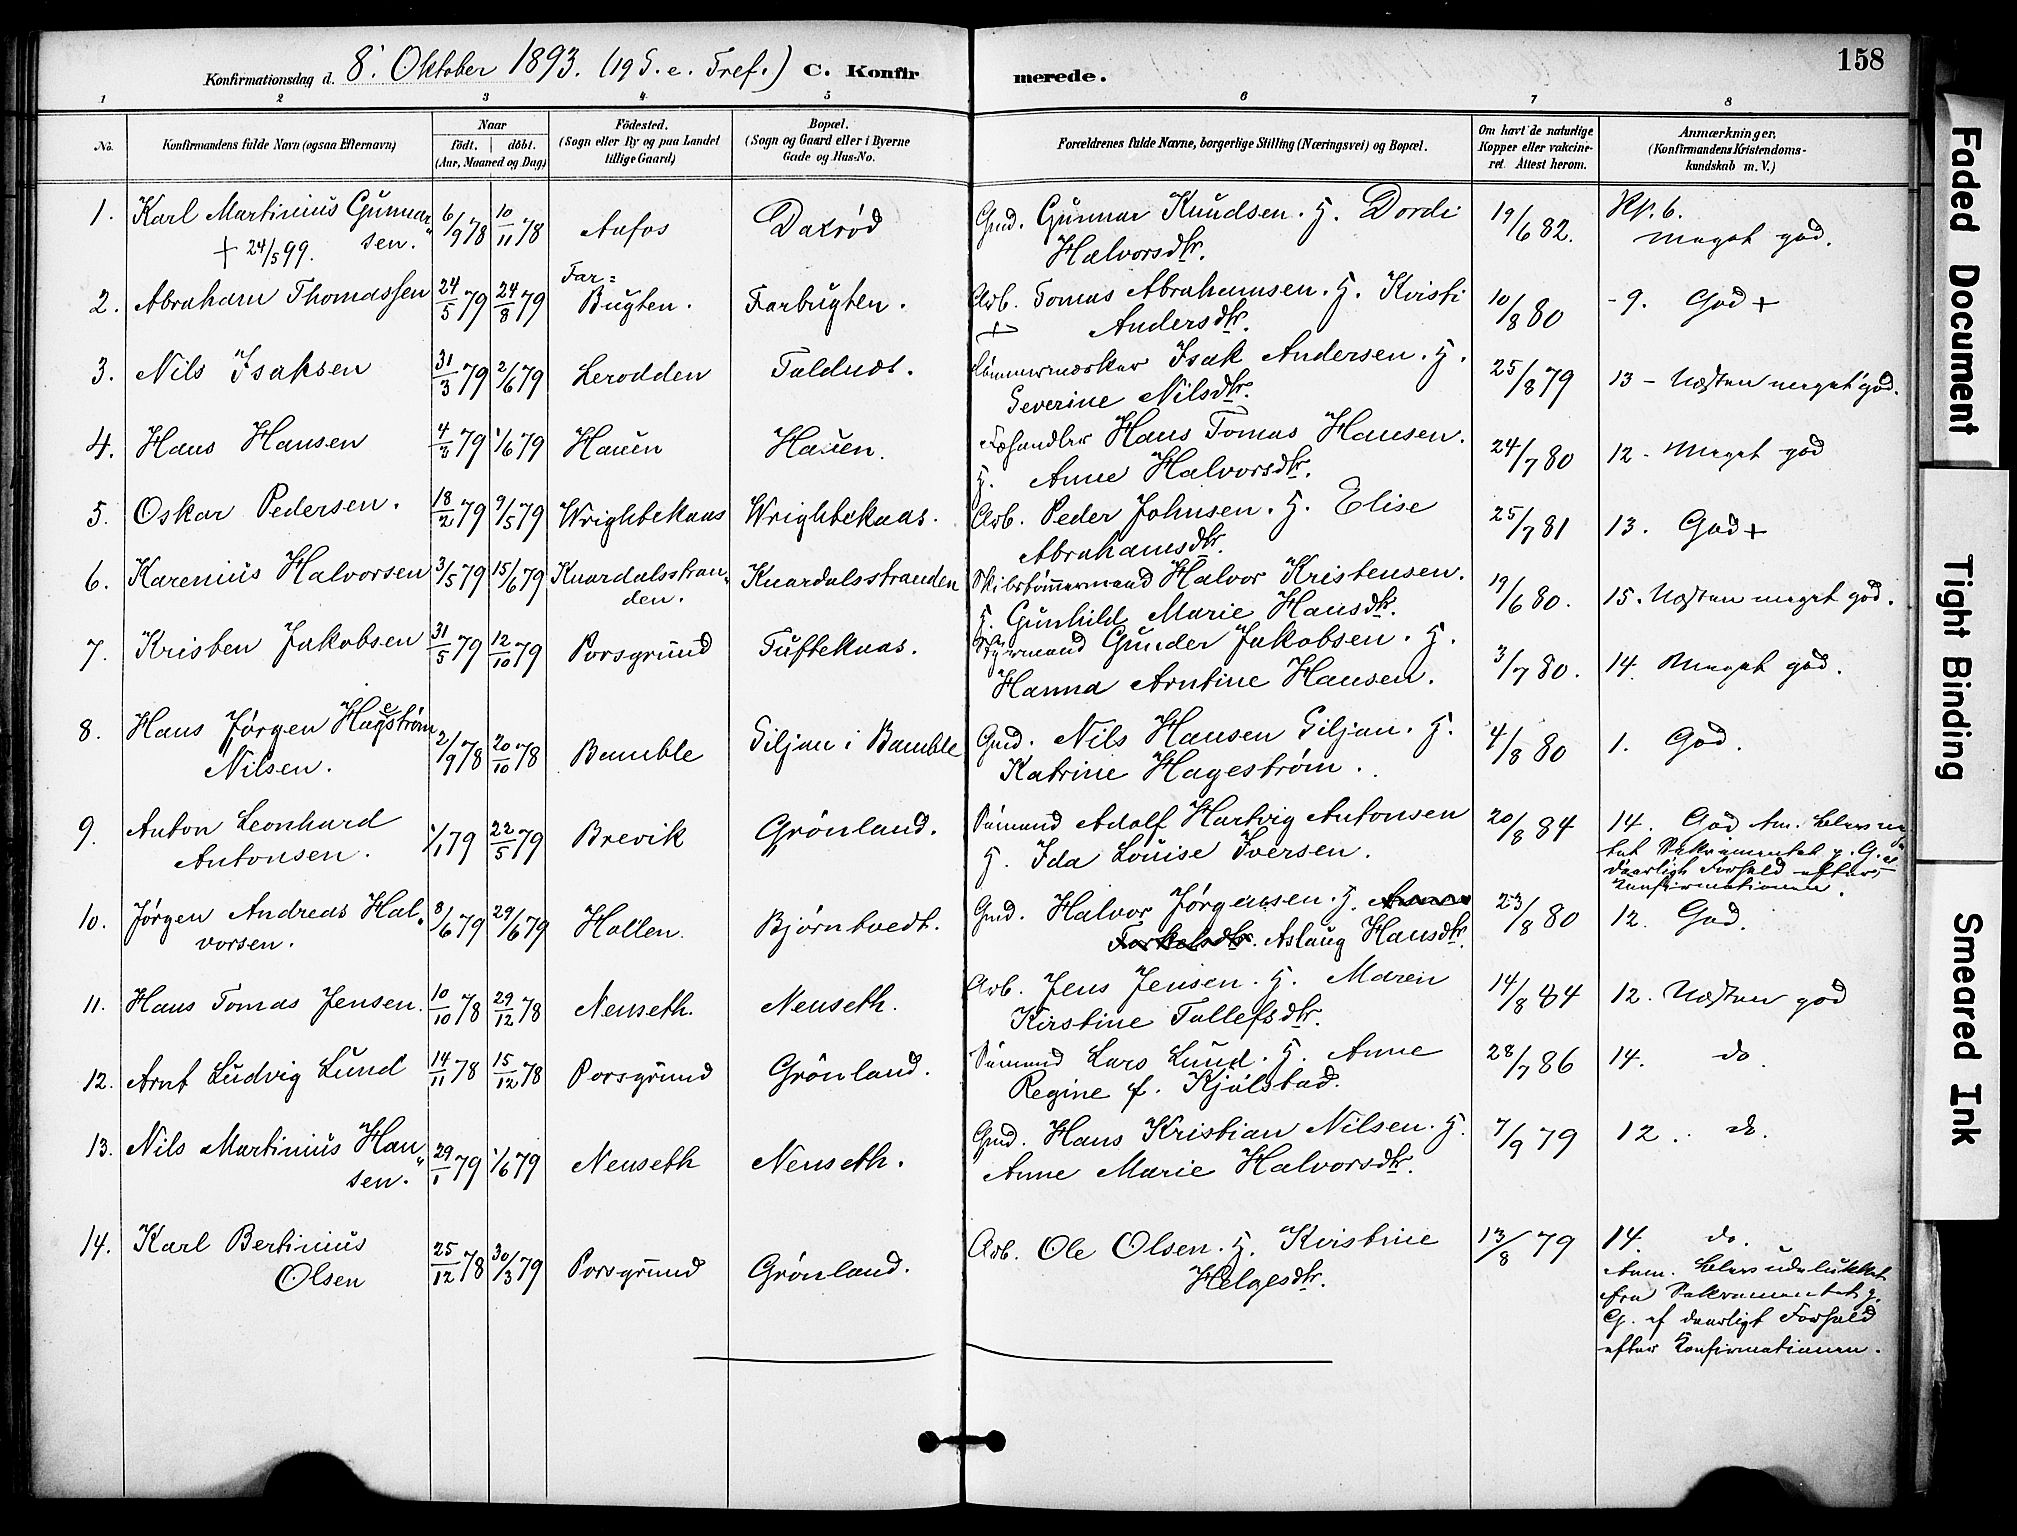 158
Konfirmationsdag d. 8' Oktober 1893. (19 S. e. Tref.) C. Konfirmerede.
1 2 3 4. 5 6 7 8
No. Konfirmandens fulde Navn (ogsaa Efternavn) Naar født. døbt. (Aar, Maaned og Dag) Fødested. (Sogn eller By og paa Landet tillige Gaard) Bopæl. (Sogn og Gaard eller i Byerne Gade og Hus-No. Forældrenes fulde Navne, borgerlige Stilling (Næringsvei) og Bopæl. Om havt de naturlige Kopper eller vakcineret. Attest herom. Anmærkninger. (Konfirmandens Kristendomskundskab m. V.)
1. Karl Martinius Gunnar- 6/9 78 10/11 78 Aafos Daxrød Gmd. Gunnar Knudsen. H. Dordi 19/6 82. Kp. 6.
sen. + 24/5 99. Halvorsdtr. Meget god.
2. Abraham Thomassen 24/5 79 24/8 79 Far= Bugten. Farbugten. Arb. Tomas Abrahamsen. H. Kristi 10/8 80 - 9. God +
+ Andersdtr.
3. Nils Isaksen 31/3 79 2/6 79 Lerodden Faldudt. Tømmermærker Isak Andersen. H. 25/8 79 13 - Næsten meget god.
Severine Nilsdtr.
4. Hans Hansen 4/3 79 1/6 79 Hauen Hauen. Fæhandler Hans Tomas Hansen. 24/7 80 12 - Meget god
H. Anne Halvorsdtr.
5. Oskar Pedersen. 18/2 79 9/5 79 Wrightekaas Wrightekaas. Arb. Peder Johnsen. H. Elise 25/7 81 13. God +
Abrahamsdtr.
6. Karenius Halvorsen 3/5 79 15/6 79 Knardalsstran- Knardalsstranden Skibstømmermand Halvor Kristensen. 19/6 80. 15. Næsten meget god.
den. H. Gunhild Marie Hansdtr.
7. Kristen Jakobsen 31/5 79 12/10 79 Porsgrund Tuftekaas. Styrmand Gunder Jakobsen. H. 3/7 80. 14. Meget god.
Hanna Arntine Hansen.
8. Hans Jørgen Hagestrøm 2/9 78 20/10 78 Bamble Siljan i Bamble Gmd. Nils Hansen Siljan. H. 4/8 80 1. God.
Nilsen. Katrine Hagestrøm.
9. Anton Leonhard 1/1 79 22/5 79 Brevik Grönland. Sömand Adolf Hartvig Antonsen 20/8 84 14. God Anm. blev næg-
Antonsen. H. Ida Louise Iversen. tet Sakramentet p. G. af
daarligt Forhold efter
Konfirmationen.
10. Jørgen Andreas Hal- 8/6 79 29/6 79 Hollen. Bjørntvedt. Gmd. Halvor Jørgensen. H. Anne 23/8 80 12. God.
vorsen. Torkelsdtr. Aslaug Hansdtr.
11. Hans Tomas Jensen. 10/10 78 29/12 78 Nenseth. Nenseth. Arb. Jens Jensen. H. Maren 14/8 84 12. Næsten god
Kirstine Tollefsdtr.
12. Arnt Ludvig Lund 14/11 78 15/12 78 Porsgrund Grönland. Sömand Lars Lund. H. Anne 28/7 86 14. do
Regine f. Kjølstad.
13. Nils Martinius Han- 29/1 79 1/6 79 Nenseth Nenseth. Gmd. Hans Kristian Nilsen. H. 7/9 79 12. do.
sen. Anne Marie Halvorsdtr.
14. Karl Bertinius 25/12 78 30/3 79 Porsgrund Grönland. Arb. Ole Olsen. H. Kristine 13/8 79 14. do.
Olsen Helgesdtr. Anm. blev udelukket
fra Sakramentet p.
G. af daarligt Forhold
efter Konfirmationen.
Faded Document
Tight Binding
Smeared Ink